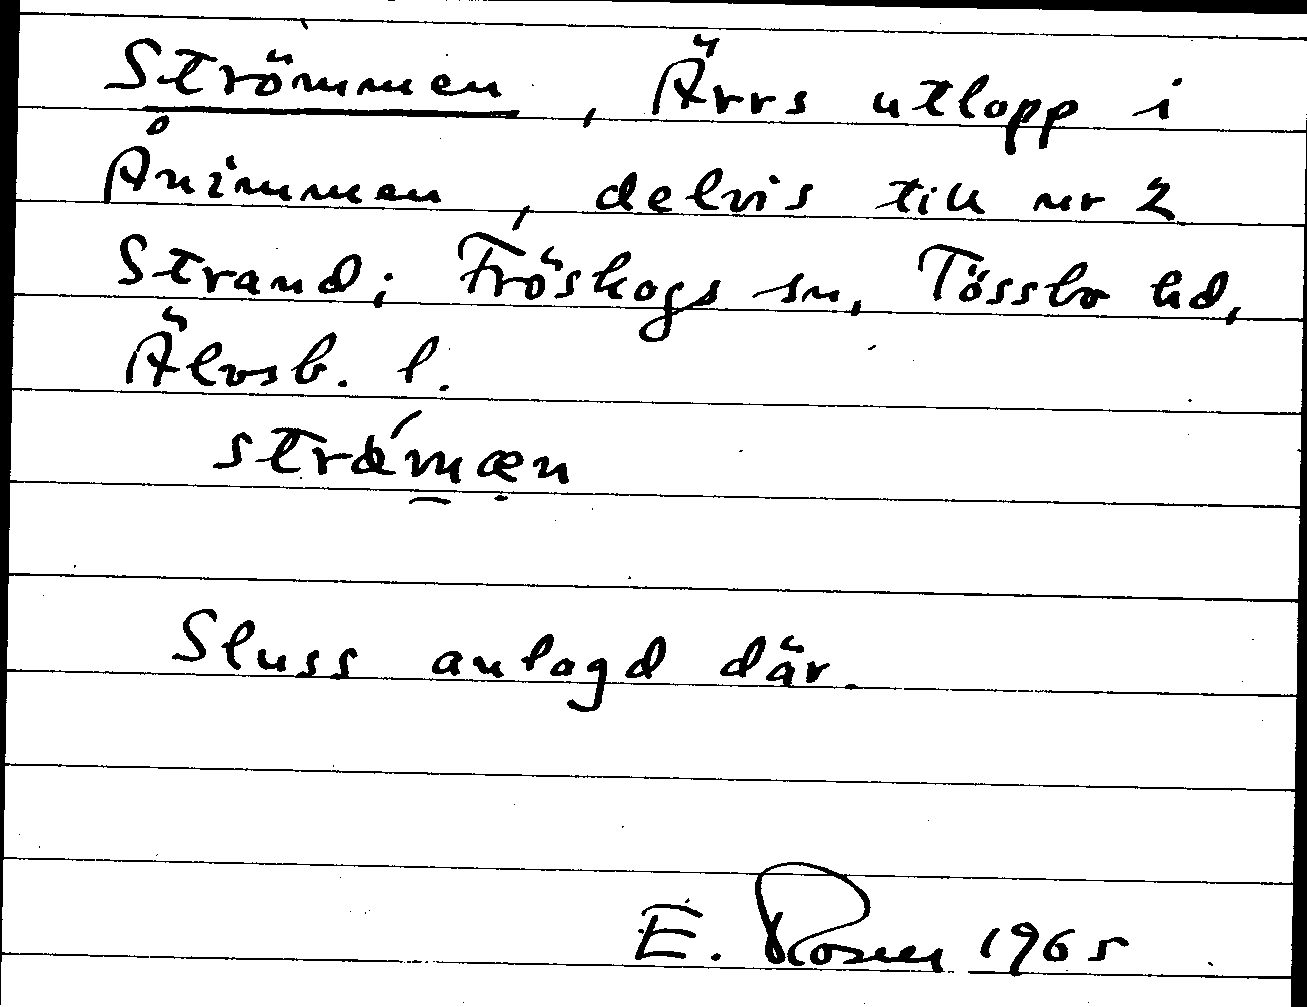 Strömmen, Ärrs utlopp i
Ånimmen, delvis till nr 2
Strand; Fröskogs sn, Tössbo hd,
Älvsb. l.
Sluss anlagd där.
E. Rosen 1965